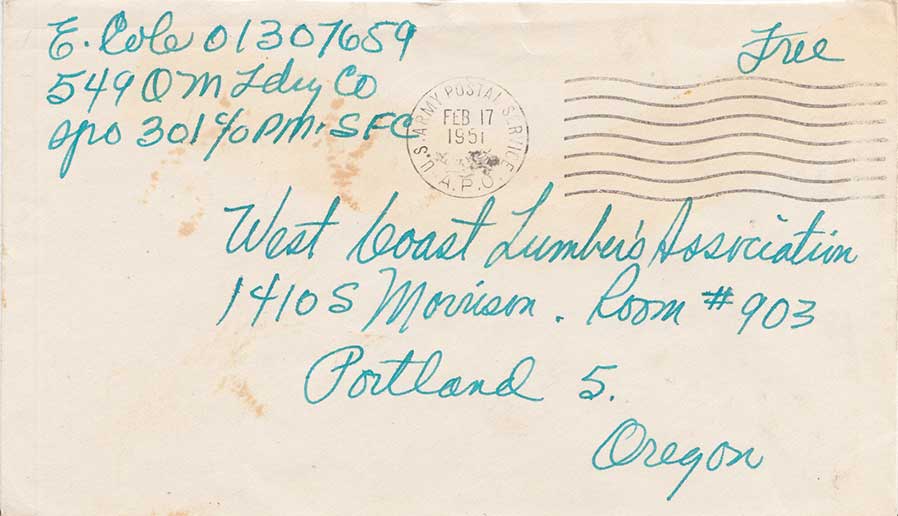 E. Cole 01307659
549 QM Ldry Co
apo 301 c/o PM. SFC
Free
U.S. ARMY POSTAL SERVICE
FEB 17
1951
A.P.O.
West Coast Lumber's Association
1410 S Morrison. Room # 903
Portland 5.
Oregon